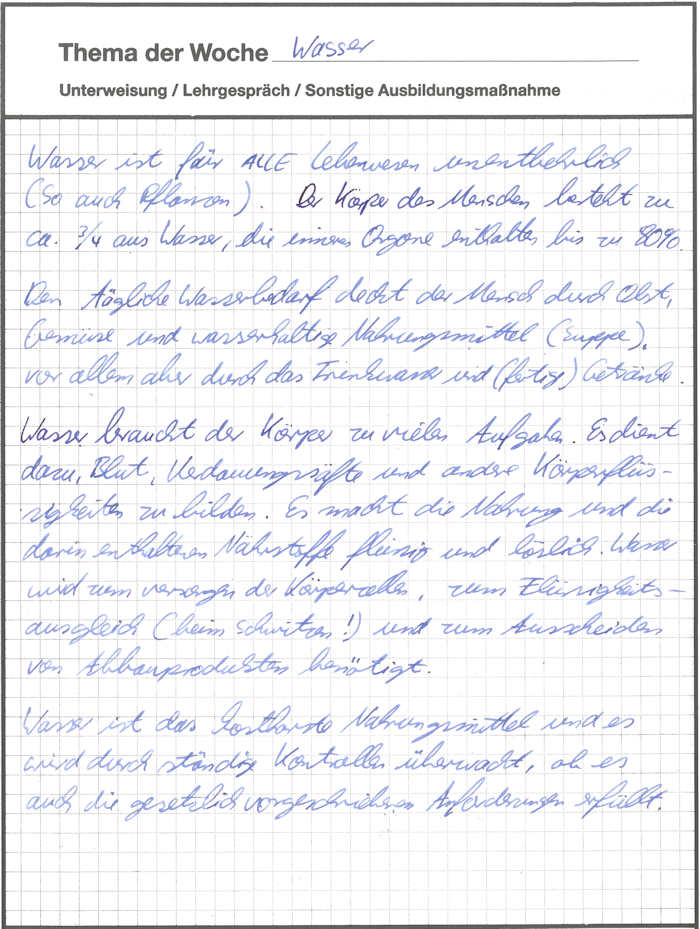 Thema der Woche Wasser
Unterweisung / Lehrgespräch / Sonstige Ausbildungsmaßnahme
Wasser ist für ALLE Lebewesen unentbehrlich
(So auch Pflanzen). Der Körper des Menschen besteht zu
ca. 3/4 aus Wasser, die inneren Organe enthalten bis zu 80%.
Den tägliche Wasserbedarf deckt der Mensch durch Obst,
Gemüse und wasserhaltige Nahrungsmittel (Suppe),
vor allem aber durch das Trinkwasser und (fertige) Getränke.
Wasser braucht der Körper zu vielen Aufgaben. Es dient
dazu, Blut, Verdauungssäfte und andere Körperflüs-
sigkeiten zu bilden. Es macht die Nahrung und die
darin enthaltenen Nährstoffe flüssig und löslich. Wasser
wird zum versorgen der Körperzellen, zum Flüssigkeits-
ausgleich (beim Schwitzen!) und zum Ausscheiden
von Abbauprodukten benötigt.
Wasser ist das kostbarste Nahrungsmittel und es
wird durch ständige Kontrollen überwacht, ob es
auch die gesetzlich vorgeschriebenen Anforderungen erfüllt.